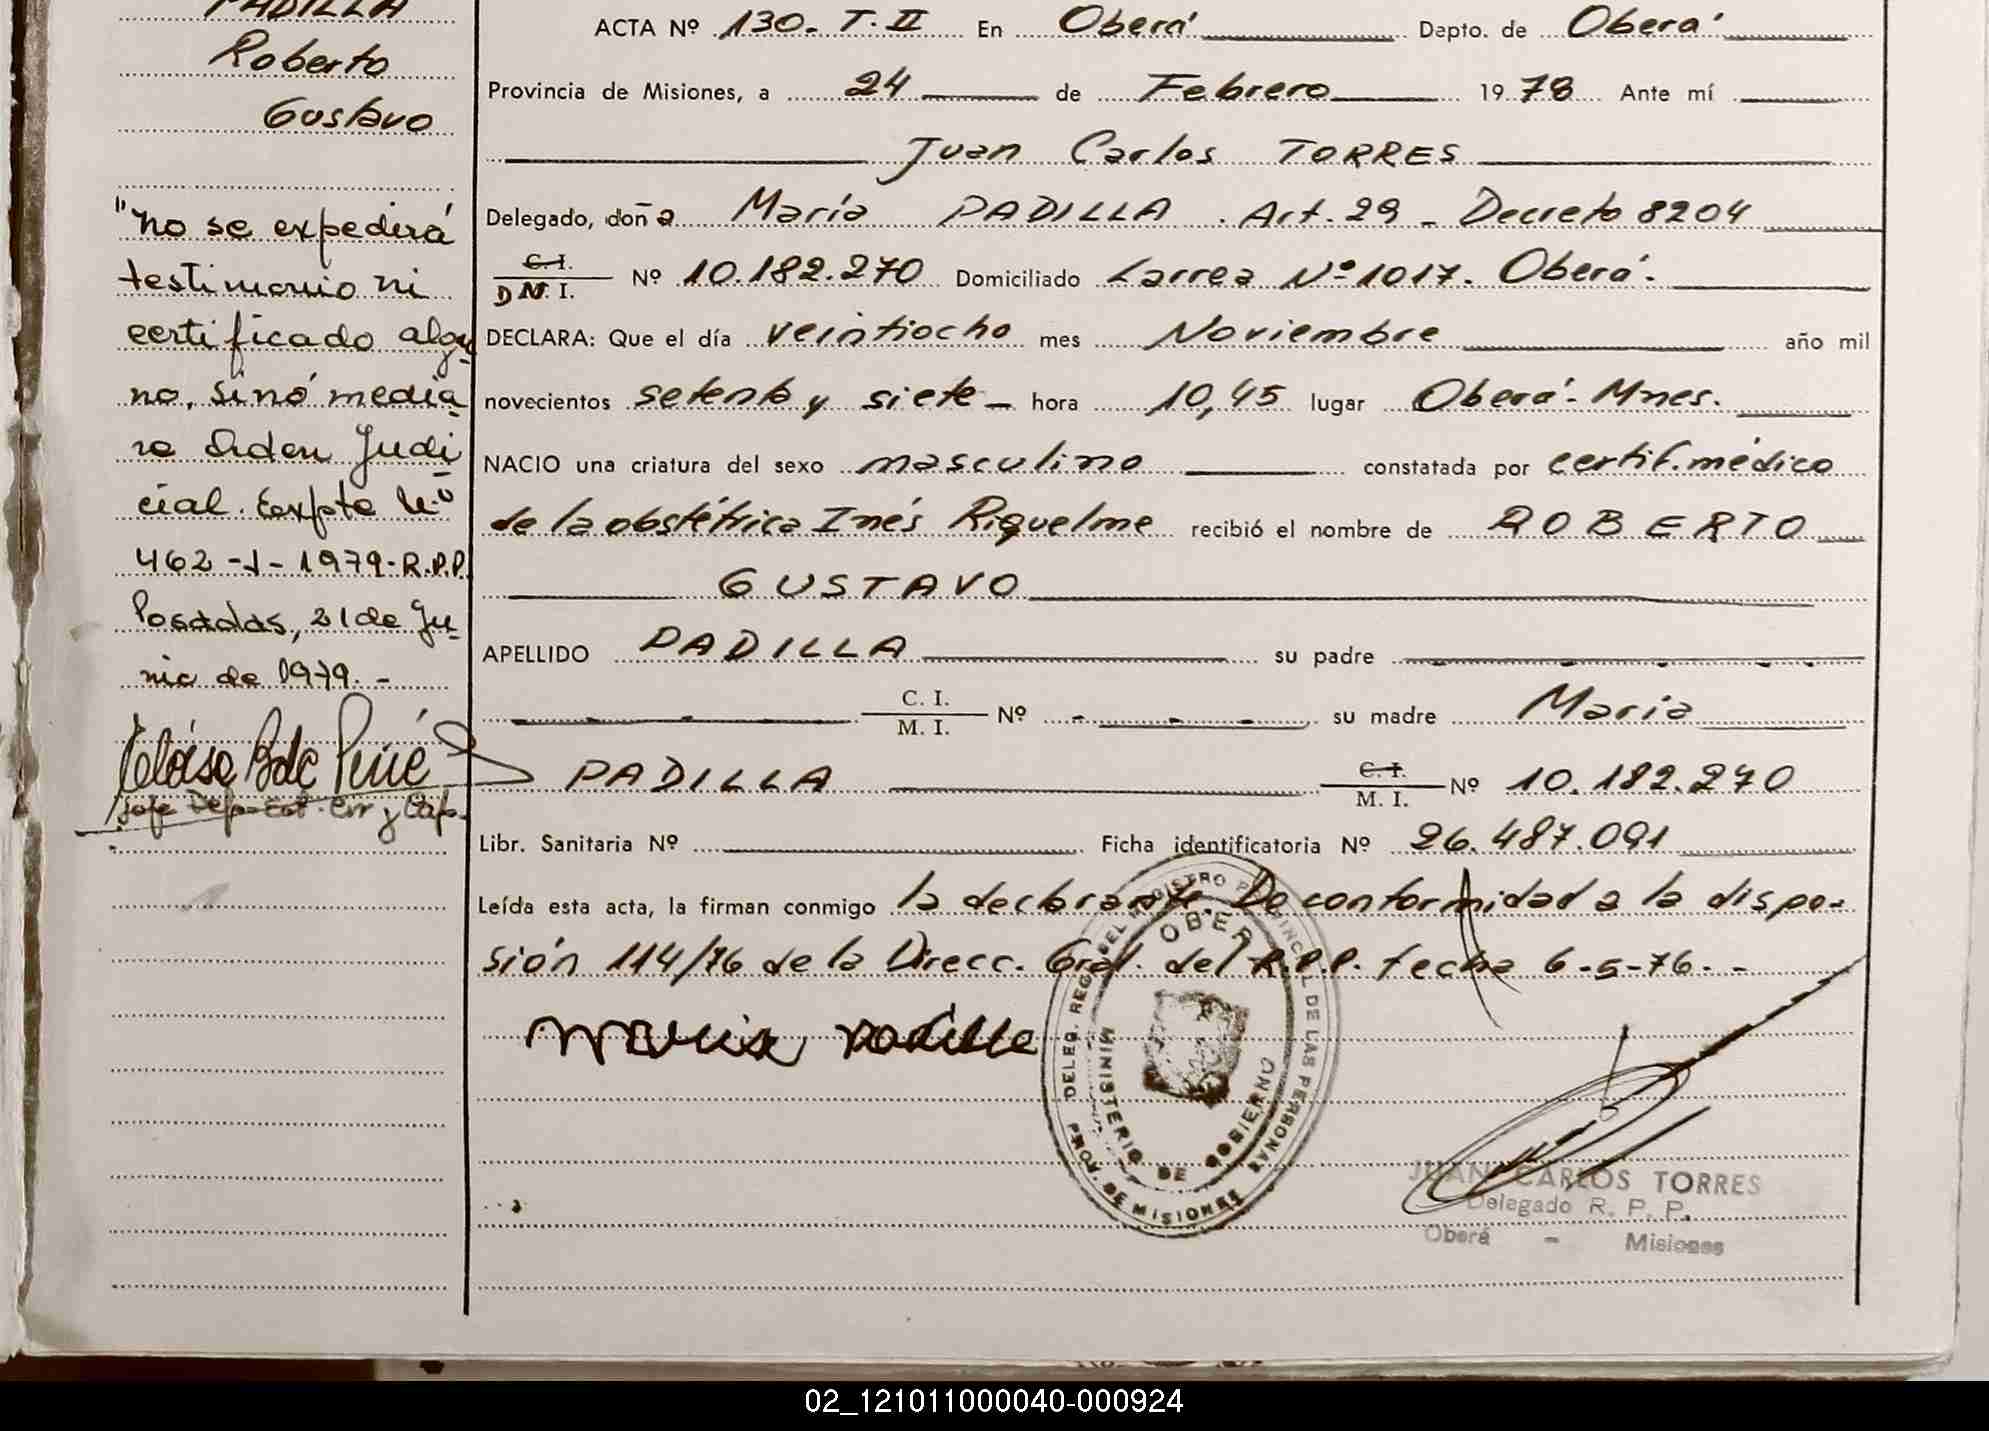 PADILLA
Roberto
Gustavo
"No se expedirá
testimonio ni
certificado algu
no, sinó median
te Orden Judi
cial. Expte Nº
462-J-1979-R.P.P.
Posadas, 21 de Ju-
nio de 1979.-
Jefe Dep.
ACTA Nº 130.- T.II En Oberá Dapto. de Oberá
Provincia de Misiones, a 24 de Febrero 1978 Ante mí
Juan Carlos TORRES
Delegado, doña María PADILLA. Art. 29 - Decreto 8204
C.I.
D N.I. Nº 10.182.270 Domiciliado Larrea Nº 1017. Oberá.
DECLARA: Que el día veintiocho mes Noviembre año mil
novecientos setenta y siete - hora 10,45 lugar Oberá - Mnes.
NACIO una criatura del sexo masculino constatada por certif. médico
de la obstétrica Inés Riquelme recibió el nombre de ROBERTO
GUSTAVO
APELLIDO PADILLA su padre
C. I.
M. I. Nº su madre María
PADILLA C. I.
M. I. Nº 10.182.270
Libr. Sanitaria Nº Ficha identificatoria Nº 26.487.091
Leída esta acta, la firman conmigo la declarante. De conformidad a la dispo-
sión 114/76 de la Direcc. Gral. del R.P.P. fecha 6-5-76.-
Maria Padilla
DELEG. REG. DEL REGISTRO PROVINCIAL DE LAS PERSONAS
OBERA
MINISTERIO DE GOBIERNO
PROV. DE MISIONES
JUAN CARLOS TORRES
Delegado R. P. P.
Oberá - Misiones
02_121011000040-000924